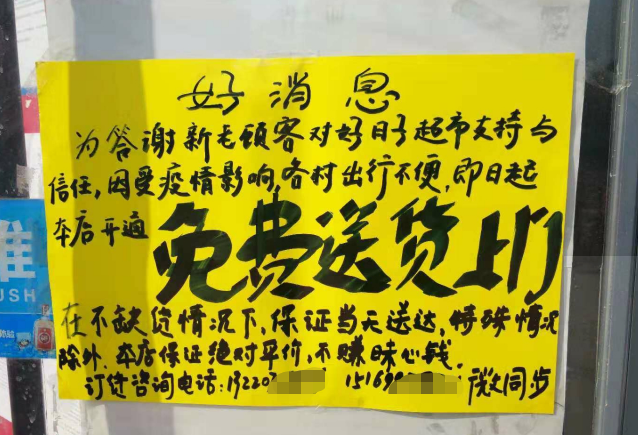 好消息
为答谢新老顾客对好日子超市支持与
信任,因受疫情影响,各村出行不便,即日起
本店开通
免费送货上门
在不缺货情况下,保证当天送达,特殊情况
除外.本店保证绝对平价,不赚昧心钱.
订货咨询电话:19220 15169 微文同步
推
USH